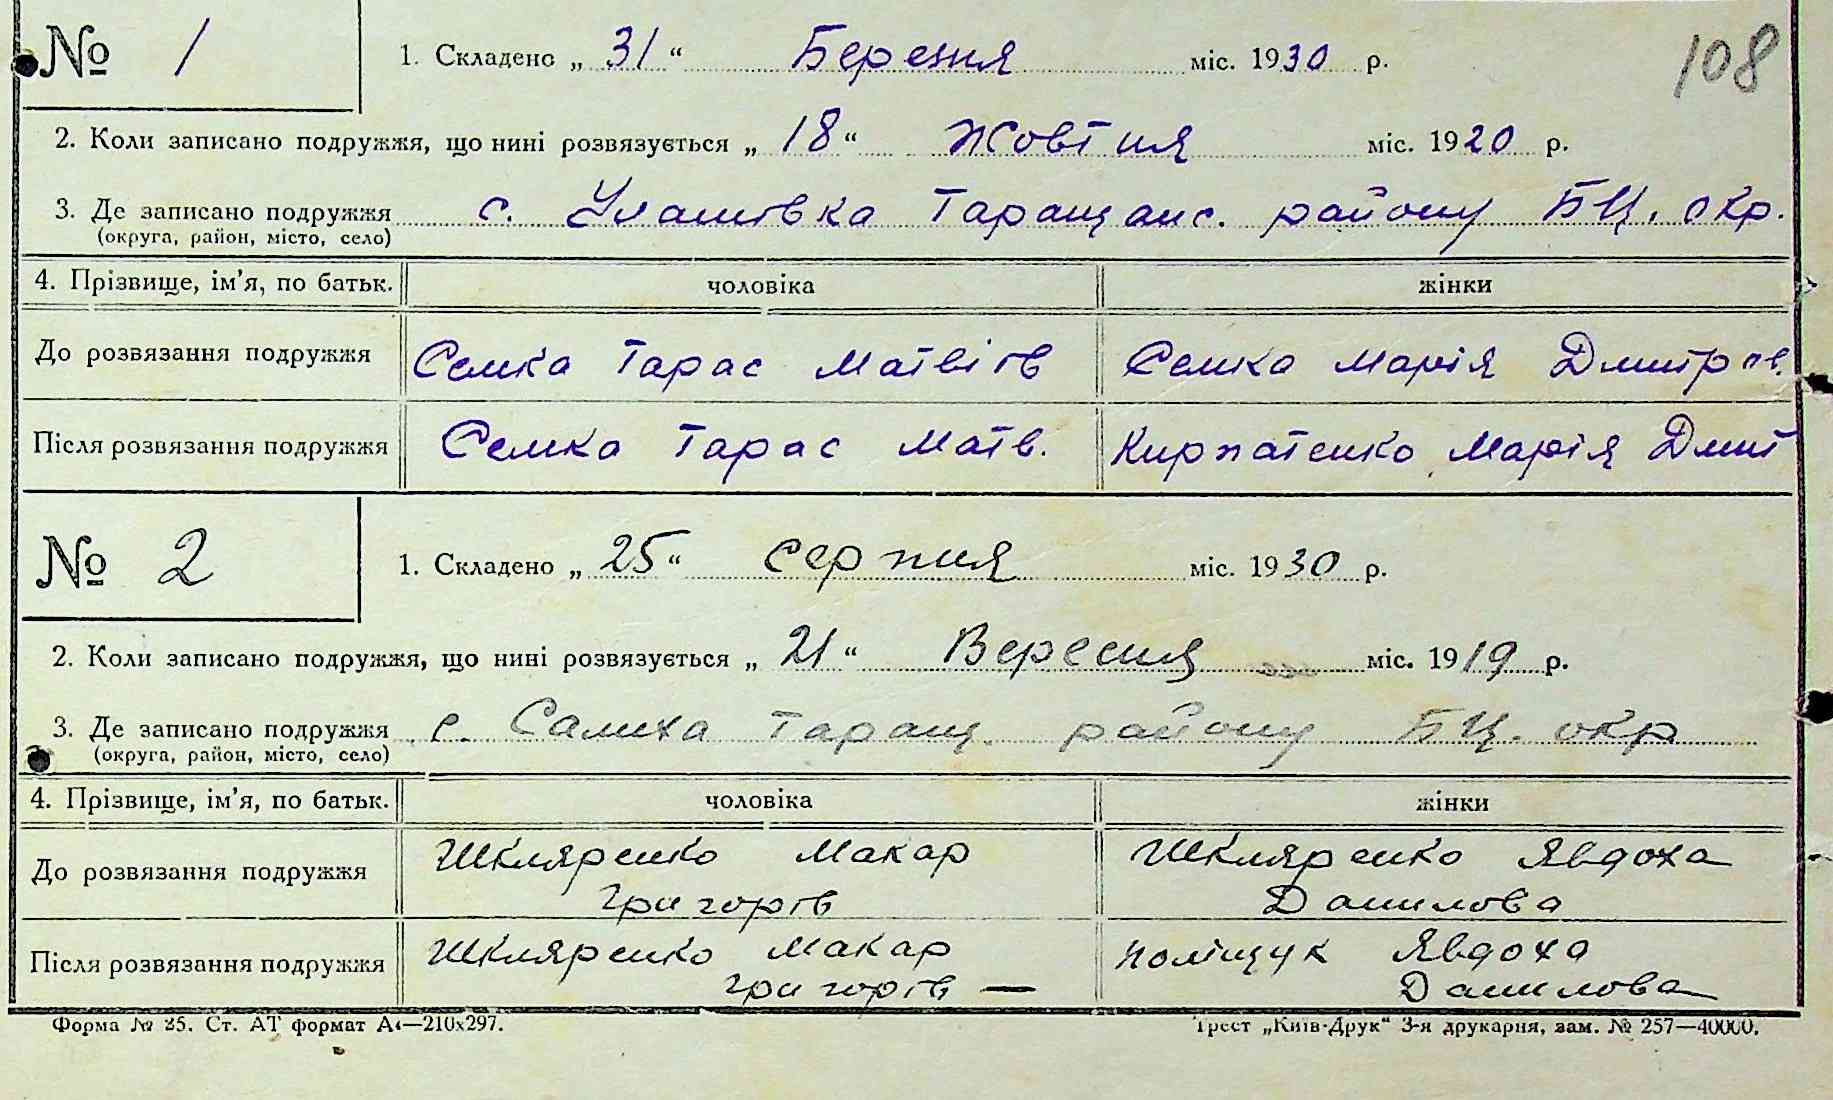 108
№ 1
1. Складено „ 31 “ Березня міс. 1930 р.
2. Коли записано подружжя, що нині розвязується „ 18 “ Жовтня міс. 1920 р.
3. Де записано подружжя с. Улашівка Таращанс. району БЦ. окр.
(округа, район, місто, село)
4. Прізвище, ім’я, по батьк. чоловіка жінки
До розвязання подружжя Семка Тарас Матвіїв Семка Марія Дмитрів.
Після розвязання подружжя Семка Тарас Матв. Марія Дмит
№ 2
1. Складено „ 25 “ серпня міс. 1930 р.
2. Коли записано подружжя, що нині розвязується „ 21 “ Вересня міс. 1919 р.
3. Де записано подружжя с. Салиха Таращ. району БЦ. окр
(округа, район, місто, село)
4. Прізвище, ім’я, по батьк. чоловіка жінки
До розвязання подружжя Шкляренко Макар Шкляренко Явдоха
Григорів Данилова
Після розвязання подружжя Шкляренко Макар Поліщук Явдоха
Григорів — Данилова
Форма № 35. Ст. АТ формат А4—210x297. Трест „Київ-Друк“ 3-я друкарня, зам. № 257—40000.